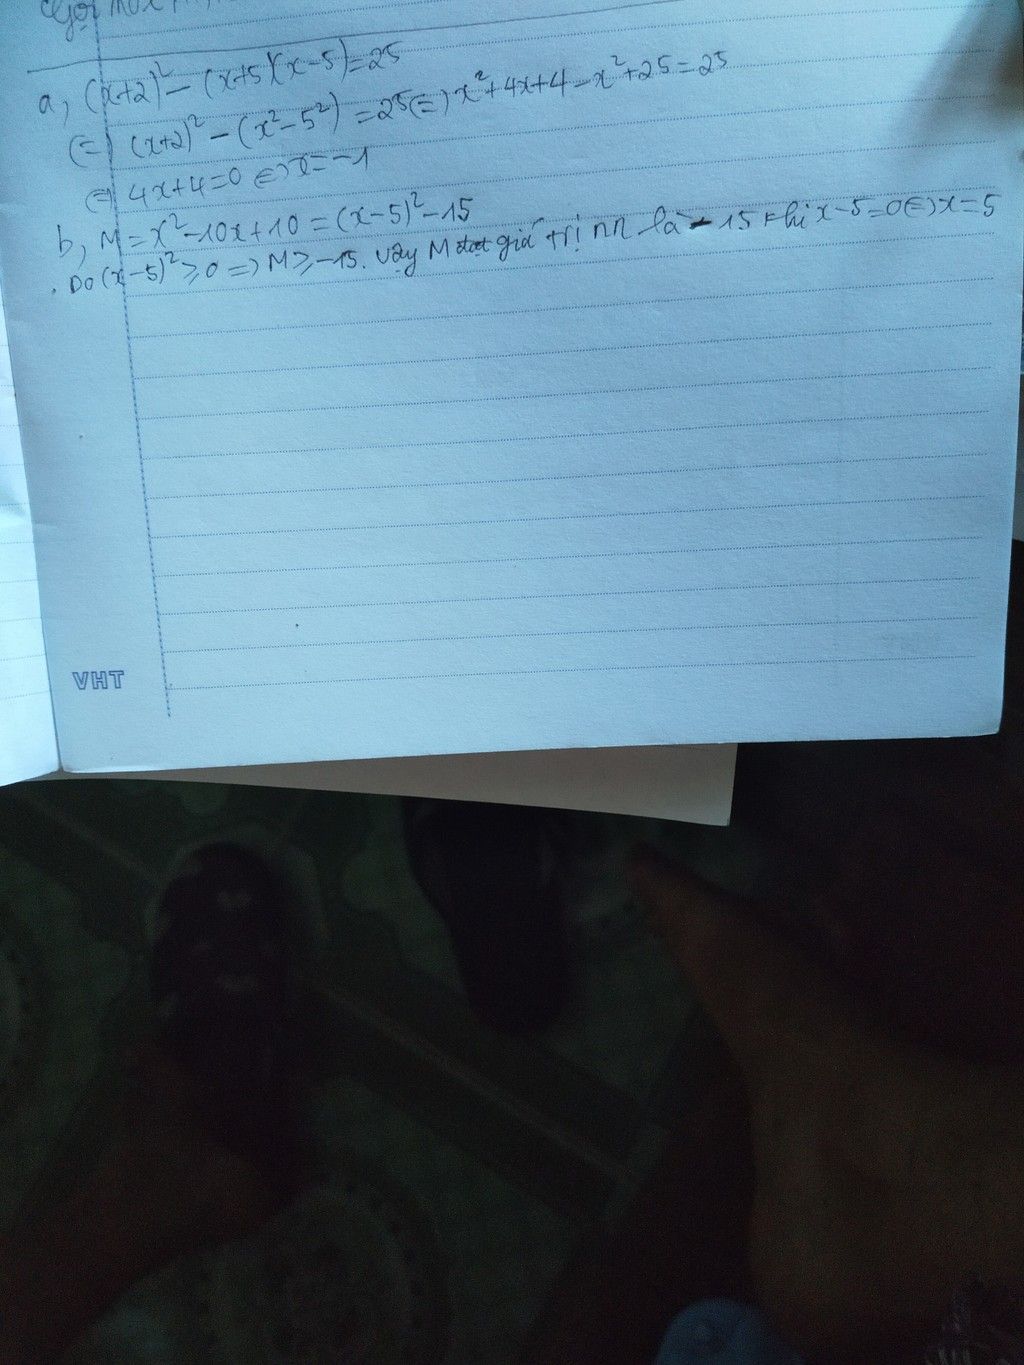 a, (x+2)² - (x+5)(x-5)=25
(=) (x+2)² - (x² - 5²) = 25 (=) x²+4x+4-x²+25=25
(=) 4x+4=0 (=) x=-1
b, M = x² - 10x + 10 = (x-5)² - 15
. Do (x-5)² ⩾ 0 => M ⩾ -15. Vậy M đạt giá trị nn là -15 khi x-5=0 (=) x=5
VHT